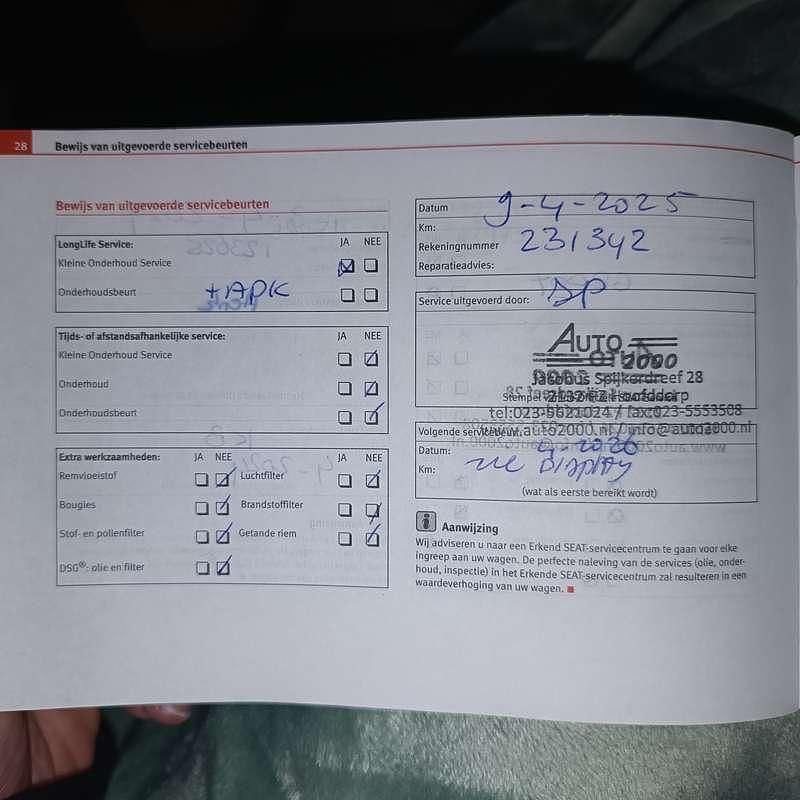 28 Bewijs van uitgevoerde servicebeurten
Bewijs van uitgevoerde servicebeurten
LongLife Service: JA NEE
Kleine Onderhoud Service
Onderhoudsbeurt +APK
Tijds- of afstandsafhankelijke service: JA NEE
Kleine Onderhoud Service
Onderhoud
Onderhoudsbeurt
Extra werkzaamheden: JA NEE JA NEE
Remvloeistof Luchtfilter
Bougies Brandstoffilter
Stof- en pollenfilter Getande riem
DSG®: olie en filter
Datum 9-4-2025
Km: 231342
Rekeningnummer
Reparatieadvies:
Service uitgevoerd door: DP
AUTO
2000
Jacobus Spijkerdreef 28
Stempel
2132 Hoofddorp
tel:023-5621024 / fax:023-5553508
www.auto2000.nl / info@auto2000.nl
Volgende servicebeurt
Datum: 4-2026
Km: zie Display
(wat als eerste bereikt wordt)
Aanwijzing
Wij adviseren u naar een Erkend SEAT-servicecentrum te gaan voor elke
ingreep aan uw wagen. De perfecte naleving van de services (olie, onder-
houd, inspectie) in het Erkende SEAT-servicecentrum zal resulteren in een
waardeverhoging van uw wagen.